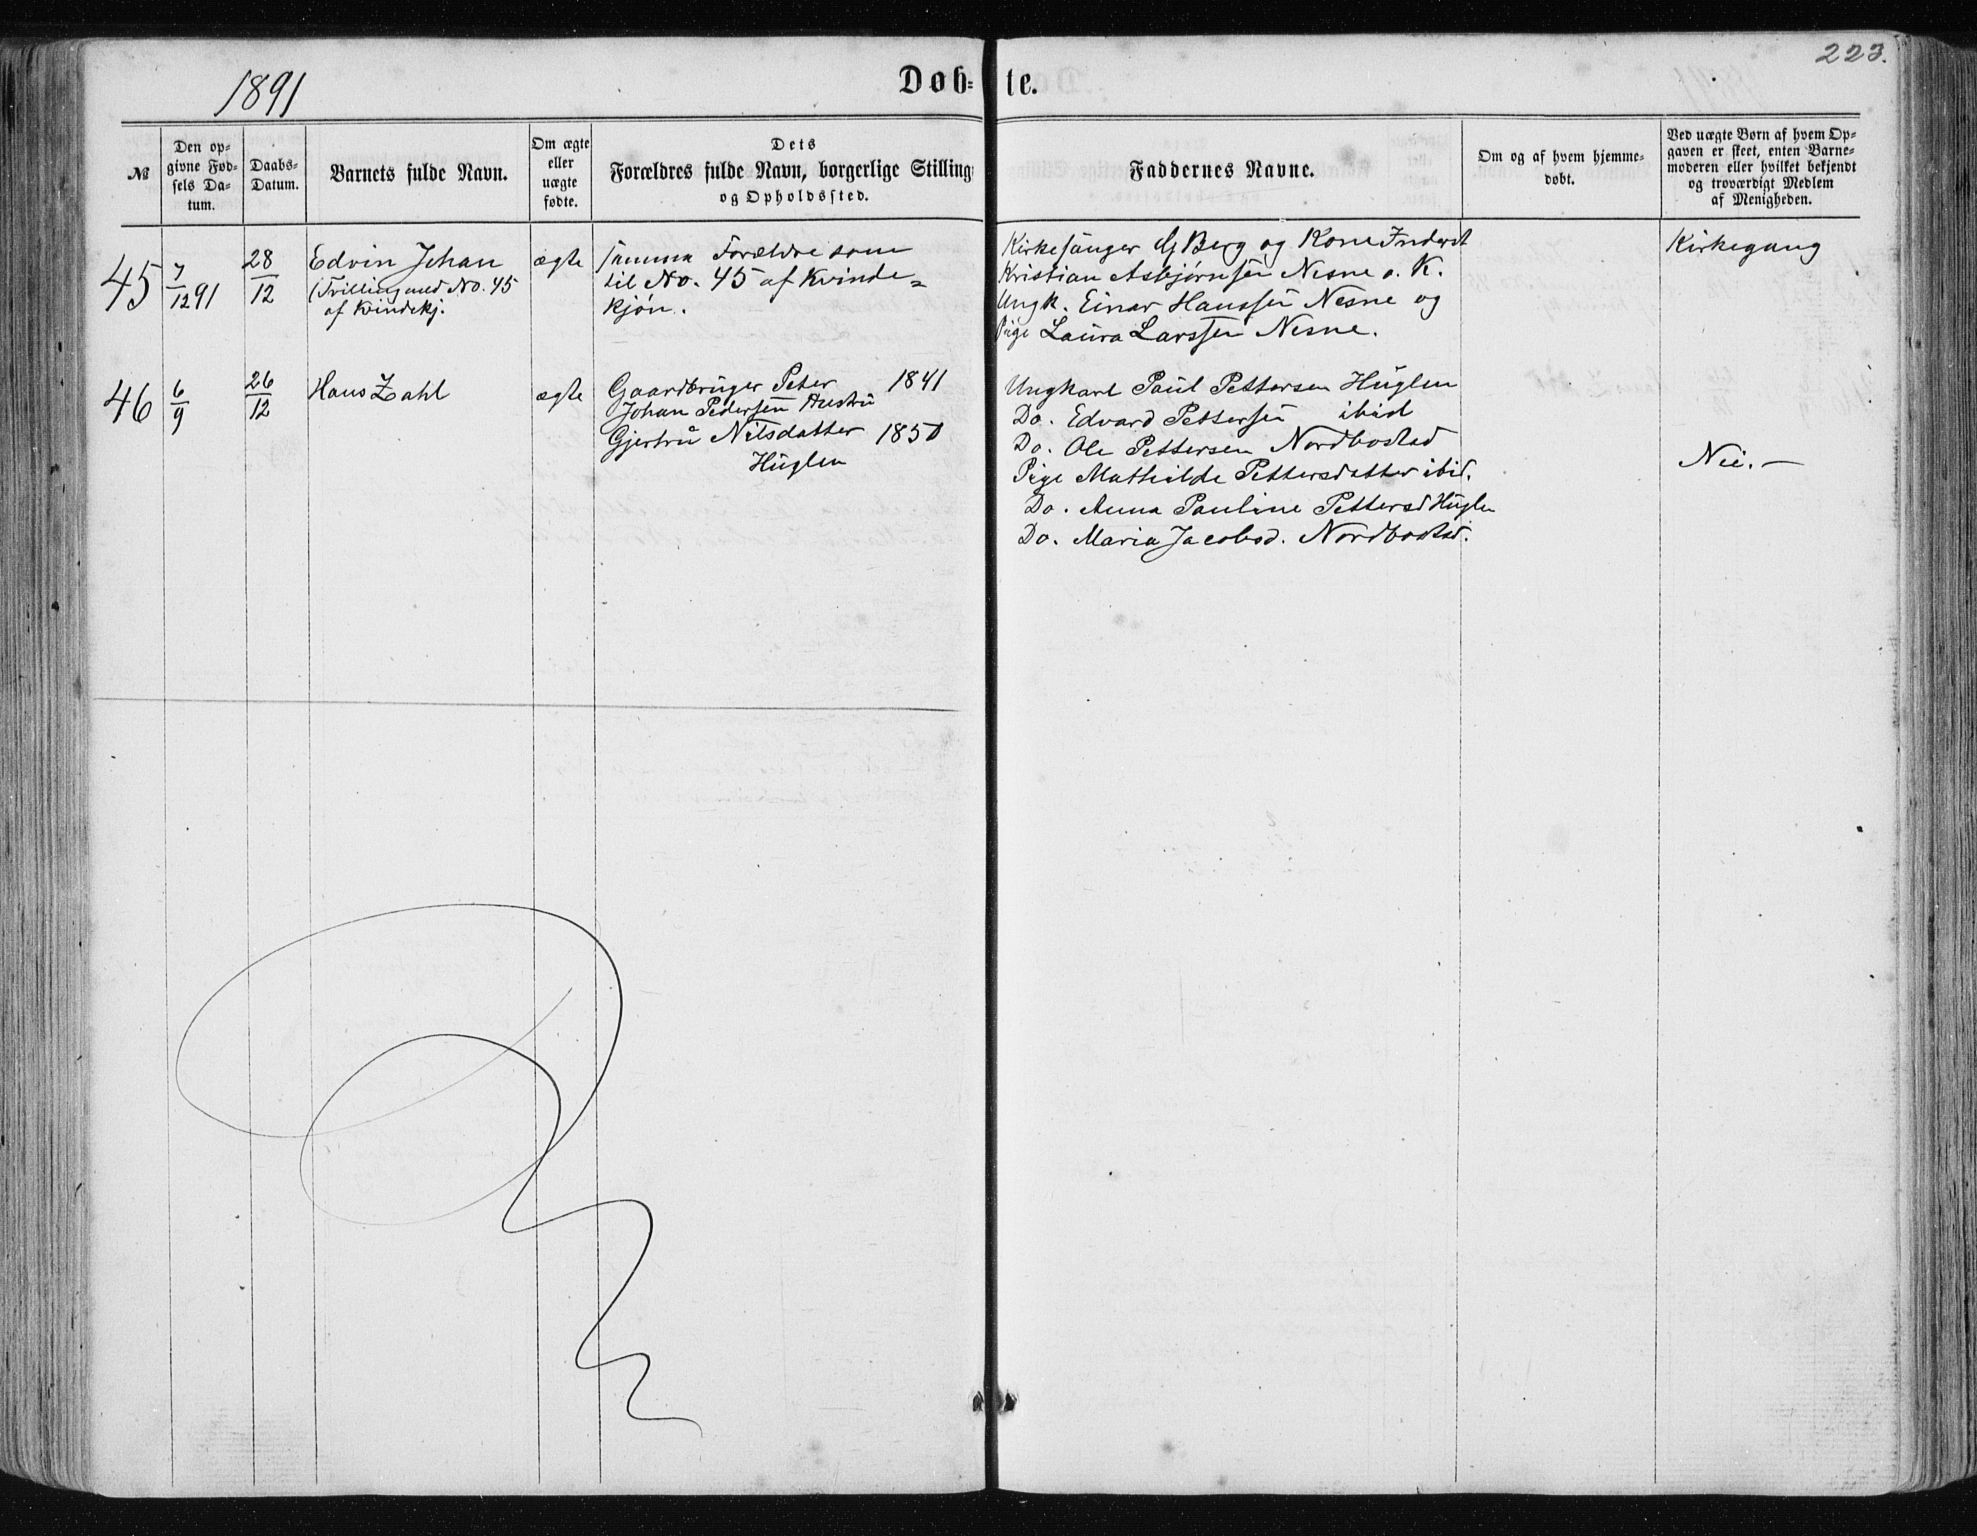 1891
Døb=
te.
223.
№
Den op=
givne Fød=
sels Da=
tum.
Daabs=
Datum.
Barnets fulde Navn.
Om ægte
eller
uægte
fødte.
Dets
Forældres fulde Navn, borgerlige Stilling
og Opholdssted.
Faddernes Navne.
Om og af hvem hjemme=
døbt.
Ved uægte Børn af hvem Op=
gaven er skeet, enten Barne=
moderen eller hvilket bekjendt
og troværdigt Medlem
af Menigheden.
45
7/12 91
28/12
Edvin Johan
(Tvilling med No. 45
af Kvindekj.
ægte
samma Forældre som
til No. 45 af Kvinde=
kjøn.
Kirkesanger G Berg og Kone Inderst
Kristian Asbjørnsen Nesne o. K.
Ungk. Einar Hanssen Nesne og
Pige Laura Larssen Nesne.
Kirkegang
46
6/9
26/12
Hans Zahl
ægte
Gaardbruger Peter 1841
Johan Pedersen Hustru
Gjertru Nilsdatter 1850
Huglen
Ungkarl Paul Pettersen Huglen
Do. Edvard Pettersen ibid
Do. Ole Pettersen Nordbostad
Pige Mathilde Pettersdatter ibid.
Do. Anna Pauline Pettersd Huglen
Do. Maria Jacobsd. Nordbostad.
Nei. —